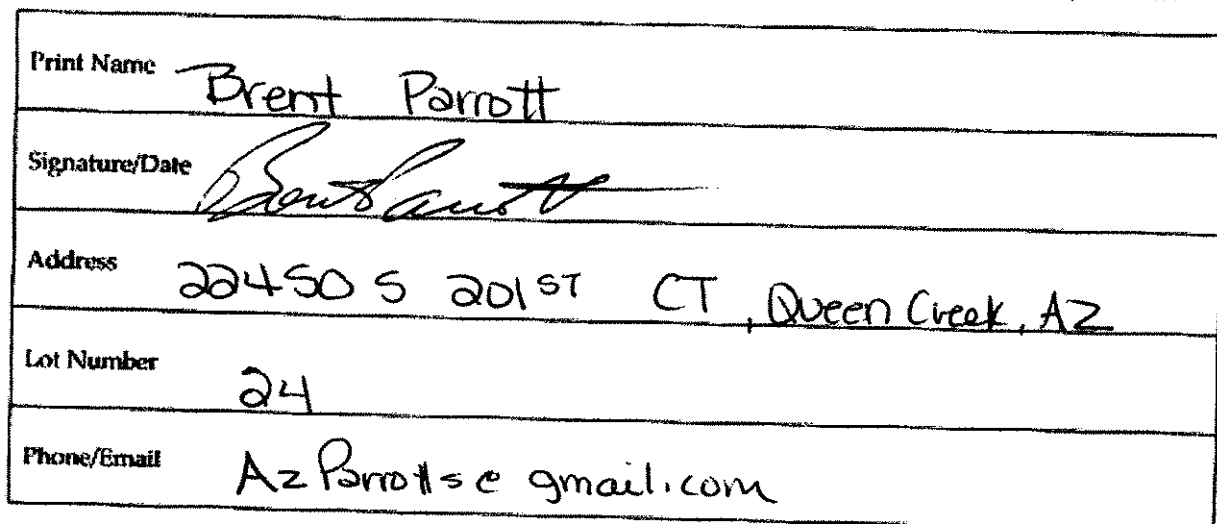 Print Name Brent Parrott
Signature/Date Brent Parrott
Address 22450 S 201ST CT, Queen Creek, AZ
Lot Number 24
Phone/Email AzParrotts@gmail.com